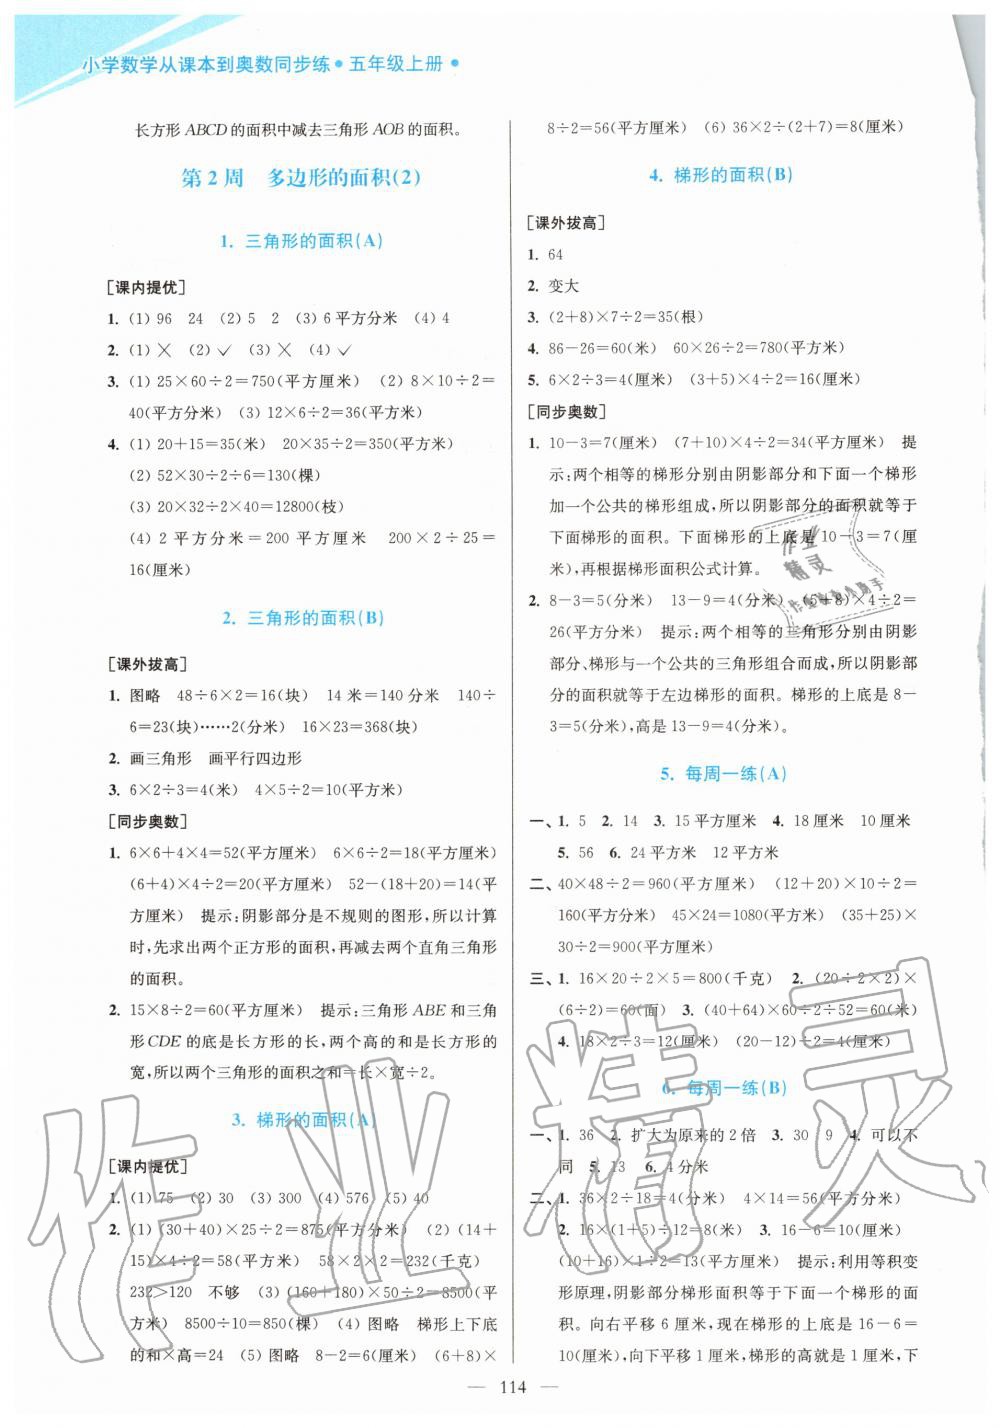 小学数学从课本到奥数同步练·五年级上册·
长方形 ABCD 的面积中减去三角形 AOB 的面积。
第 2 周 多边形的面积(2)
1. 三角形的面积(A)
[课内提优]
1. (1) 96 24 (2) 5 2 (3) 6 平方分米 (4) 4
2. (1) ╳ (2) ✓ (3) ╳ (4) ✓
3. (1) 25×60÷2=750(平方厘米) (2) 8×10÷2=
40(平方分米) (3) 12×6÷2=36(平方米)
4. (1) 20+15=35(米) 20×35÷2=350(平方米)
(2) 52×30÷2÷6=130(棵)
(3) 20×32÷2×40=12800(枝)
(4) 2 平方分米=200 平方厘米 200×2÷25=
16(厘米)
2. 三角形的面积(B)
[课外拔高]
1. 图略 48÷6×2=16(块) 14 米=140 分米 140÷
6=23(块)……2(分米) 16×23=368(块)
2. 画三角形 画平行四边形
3. 6×2÷3=4(米) 4×5÷2=10(平方米)
[同步奥数]
1. 6×6+4×4=52(平方厘米) 6×6÷2=18(平方厘米)
(6+4)×4÷2=20(平方厘米) 52-(18+20)=14(平
方厘米) 提示:阴影部分是不规则的图形,所以计算
时,先求出两个正方形的面积,再减去两个直角三角形
的面积。
2. 15×8÷2=60(平方厘米) 提示:三角形 ABE 和三角
形CDE 的底是长方形的长,两个高的和是长方形的
宽,所以两个三角形的面积之和=长×宽÷2。
3. 梯形的面积(A)
[课内提优]
1. (1) 75 (2) 30 (3) 300 (4) 576 (5) 40
2. (1) (30+40)×25÷2=875(平方分米) (2) (14+
15)×4÷2=58(平方米) 58×2×2=232(千克)
232>120 不够 (3) (160+180)×50÷2=8500(平
方米) 8500÷10=850(棵) (4) 图略 梯形上下底
的和×高=24 (5) 图略 8-2=6(厘米) (6+8)×
8÷2=56(平方厘米) (6) 36×2÷(2+7)=8(厘米)
4. 梯形的面积(B)
[课外拔高]
1. 64
2. 变大
3. (2+8)×7÷2=35(根)
4. 86-26=60(米) 60×26÷2=780(平方米)
5. 6×2÷3=4(厘米) (3+5)×4÷2=16(厘米)
[同步奥数]
1. 10-3=7(厘米) (7+10)×4÷2=34(平方厘米) 提
示:两个相等的梯形分别由阴影部分和下面一个梯形
加一个公共的梯形组成,所以阴影部分的面积就等于
下面梯形的面积。下面梯形的上底是 10-3=7(厘
米),再根据梯形面积公式计算。
2. 8-3=5(分米) 13-9=4(分米) (5+8)×4÷2=
26(平方分米) 提示:两个相等的三角形分别由阴影
部分、梯形与一个公共的三角形组合而成,所以阴影部
分的面积就等于左边梯形的面积。梯形的上底是 8-
3=5(分米),高是 13-9=4(分米)。
5. 每周一练(A)
一、1. 5 2. 14 3. 15 平方厘米 4. 18 厘米 10 厘米
5. 56 6. 24 平方米 12 平方米
二、40×48÷2=960(平方厘米) (12+20)×10÷2=
160(平方分米) 45×24=1080(平方米) (35+25)×
30÷2=900(平方厘米)
三、1. 16×20÷2×5=800(千克) 2. (20÷2×2)×
(6÷2)=60(面) 3. (40+64)×60÷2÷52=60(米)
4. 18×2÷3=12(厘米) (20-12)÷2=4(厘米)
6. 每周一练(B)
一、1. 36 2. 扩大为原来的 2 倍 3. 30 9 4. 可以不
同 5. 13 6. 4 分米
二、1. 36×2÷18=4(分米) 4×14=56(平方分米)
2. 16×(1+5)÷12=8(米) 3. 16-6=10(厘米)
(10+16)×1÷2=13(平方厘米) 提示:利用等积变
形原理,阴影部分梯形面积等于下方一个梯形的面
积。向右平移 6 厘米,现在梯形的上底是 16-6=
10(厘米),向下平移 1 厘米,梯形的高就是 1 厘米,下
— 114 —
作业精灵
作业
精灵